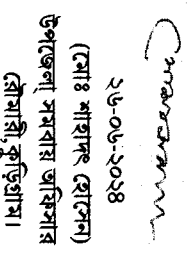 ২৬-০৬-২০২৪
(মোঃ শাহাদৎ হোসেন)
উপজেলা সমবায় অফিসার
রৌমারী, কুড়িগ্রাম।